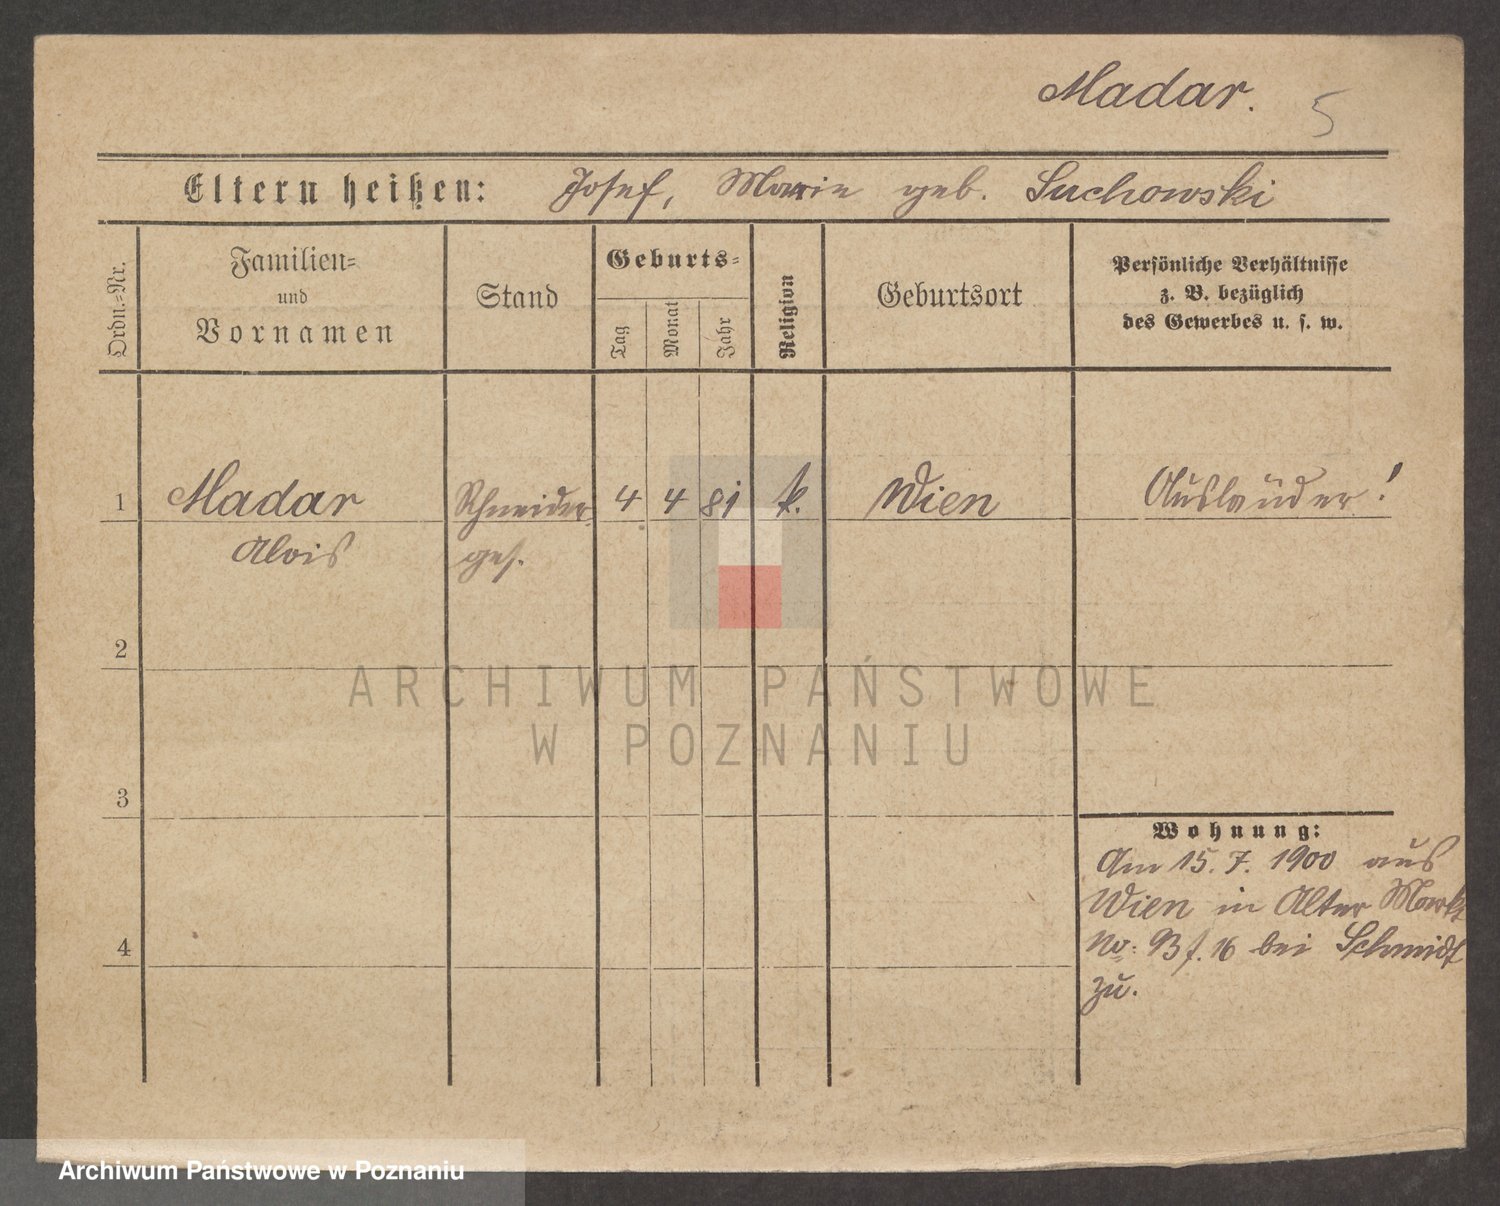 Madar. 5
Eltern heißen: Josef, Marie geb. Suchowski
Ordn.=Nr.
Familien=
und
Vornamen
Stand
Geburts=
Tag
Monat
Jahr
Religion
Geburtsort
Persönliche Verhältnisse
z. B. bezüglich
des Gewerbes u. s. w.
1 Madar Schneider 4 4 81 k. Wien Ausländer!
Alois ges.
2
ARCHIWUM PAŃSTWOWE
W POZNANIU
3
Wohnung:
Am 15. 7. 1900 aus
Wien in Alter Markt
4 No: 93 f. 16 bei Schmidt
zu.
Archiwum Państwowe w Poznaniu